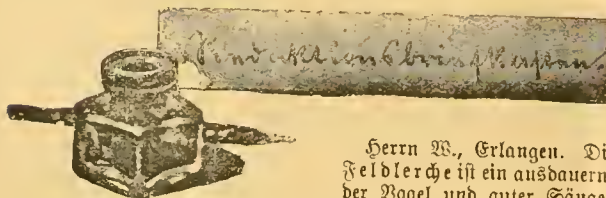 Redaktionsbriefkasten
Herrn W., Erlangen. Di
Feldlerche ist ein ausdauern
der Vogel und guter Sänge